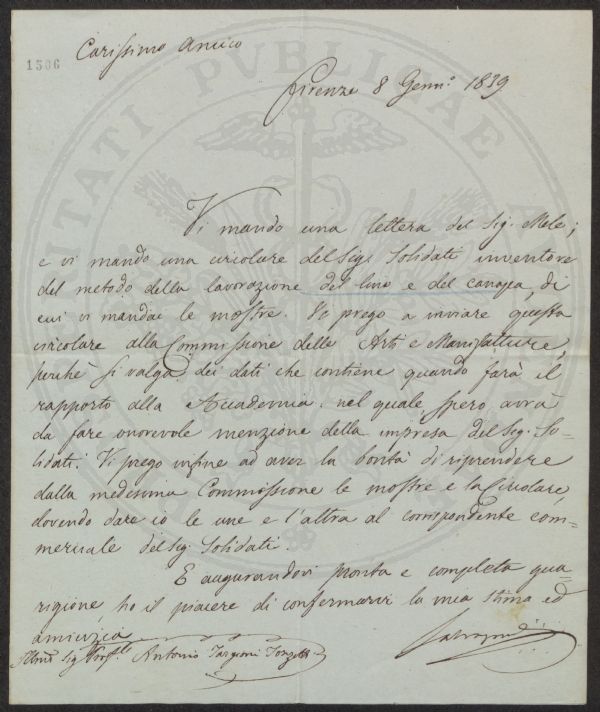 1306
Carissimo Amico
Firenze 8 Genn.° 1839
Vi mando una lettera del Sig. Mele;
e vi mando una circolare del Sig. Solidati inventore
del metodo della lavorazione del lino e del canapa, di
cui vi mandai le mostre. Vi prego a inviare questa
circolare alla Commissione delle Arti e Manifatture,
perchè si valga dei dati che contiene quando farà il
rapporto alla Accademia nel quale spero avrà
da fare onorevole menzione della impresa del Sig. So-
lidati. Vi prego infine ad aver la bontà di riprendere
dalla medesima Commissione le mostre e la Circolare,
dovendo dare io le une e l'altra al corrispondente com-
merciale del Sig. Solidati.
E augurandovi pronta e completa gua-
rigione, ho il piacere di confermarvi la mia stima ed
amicizia
Sig. Prof. Antonio Targioni Tozzetti